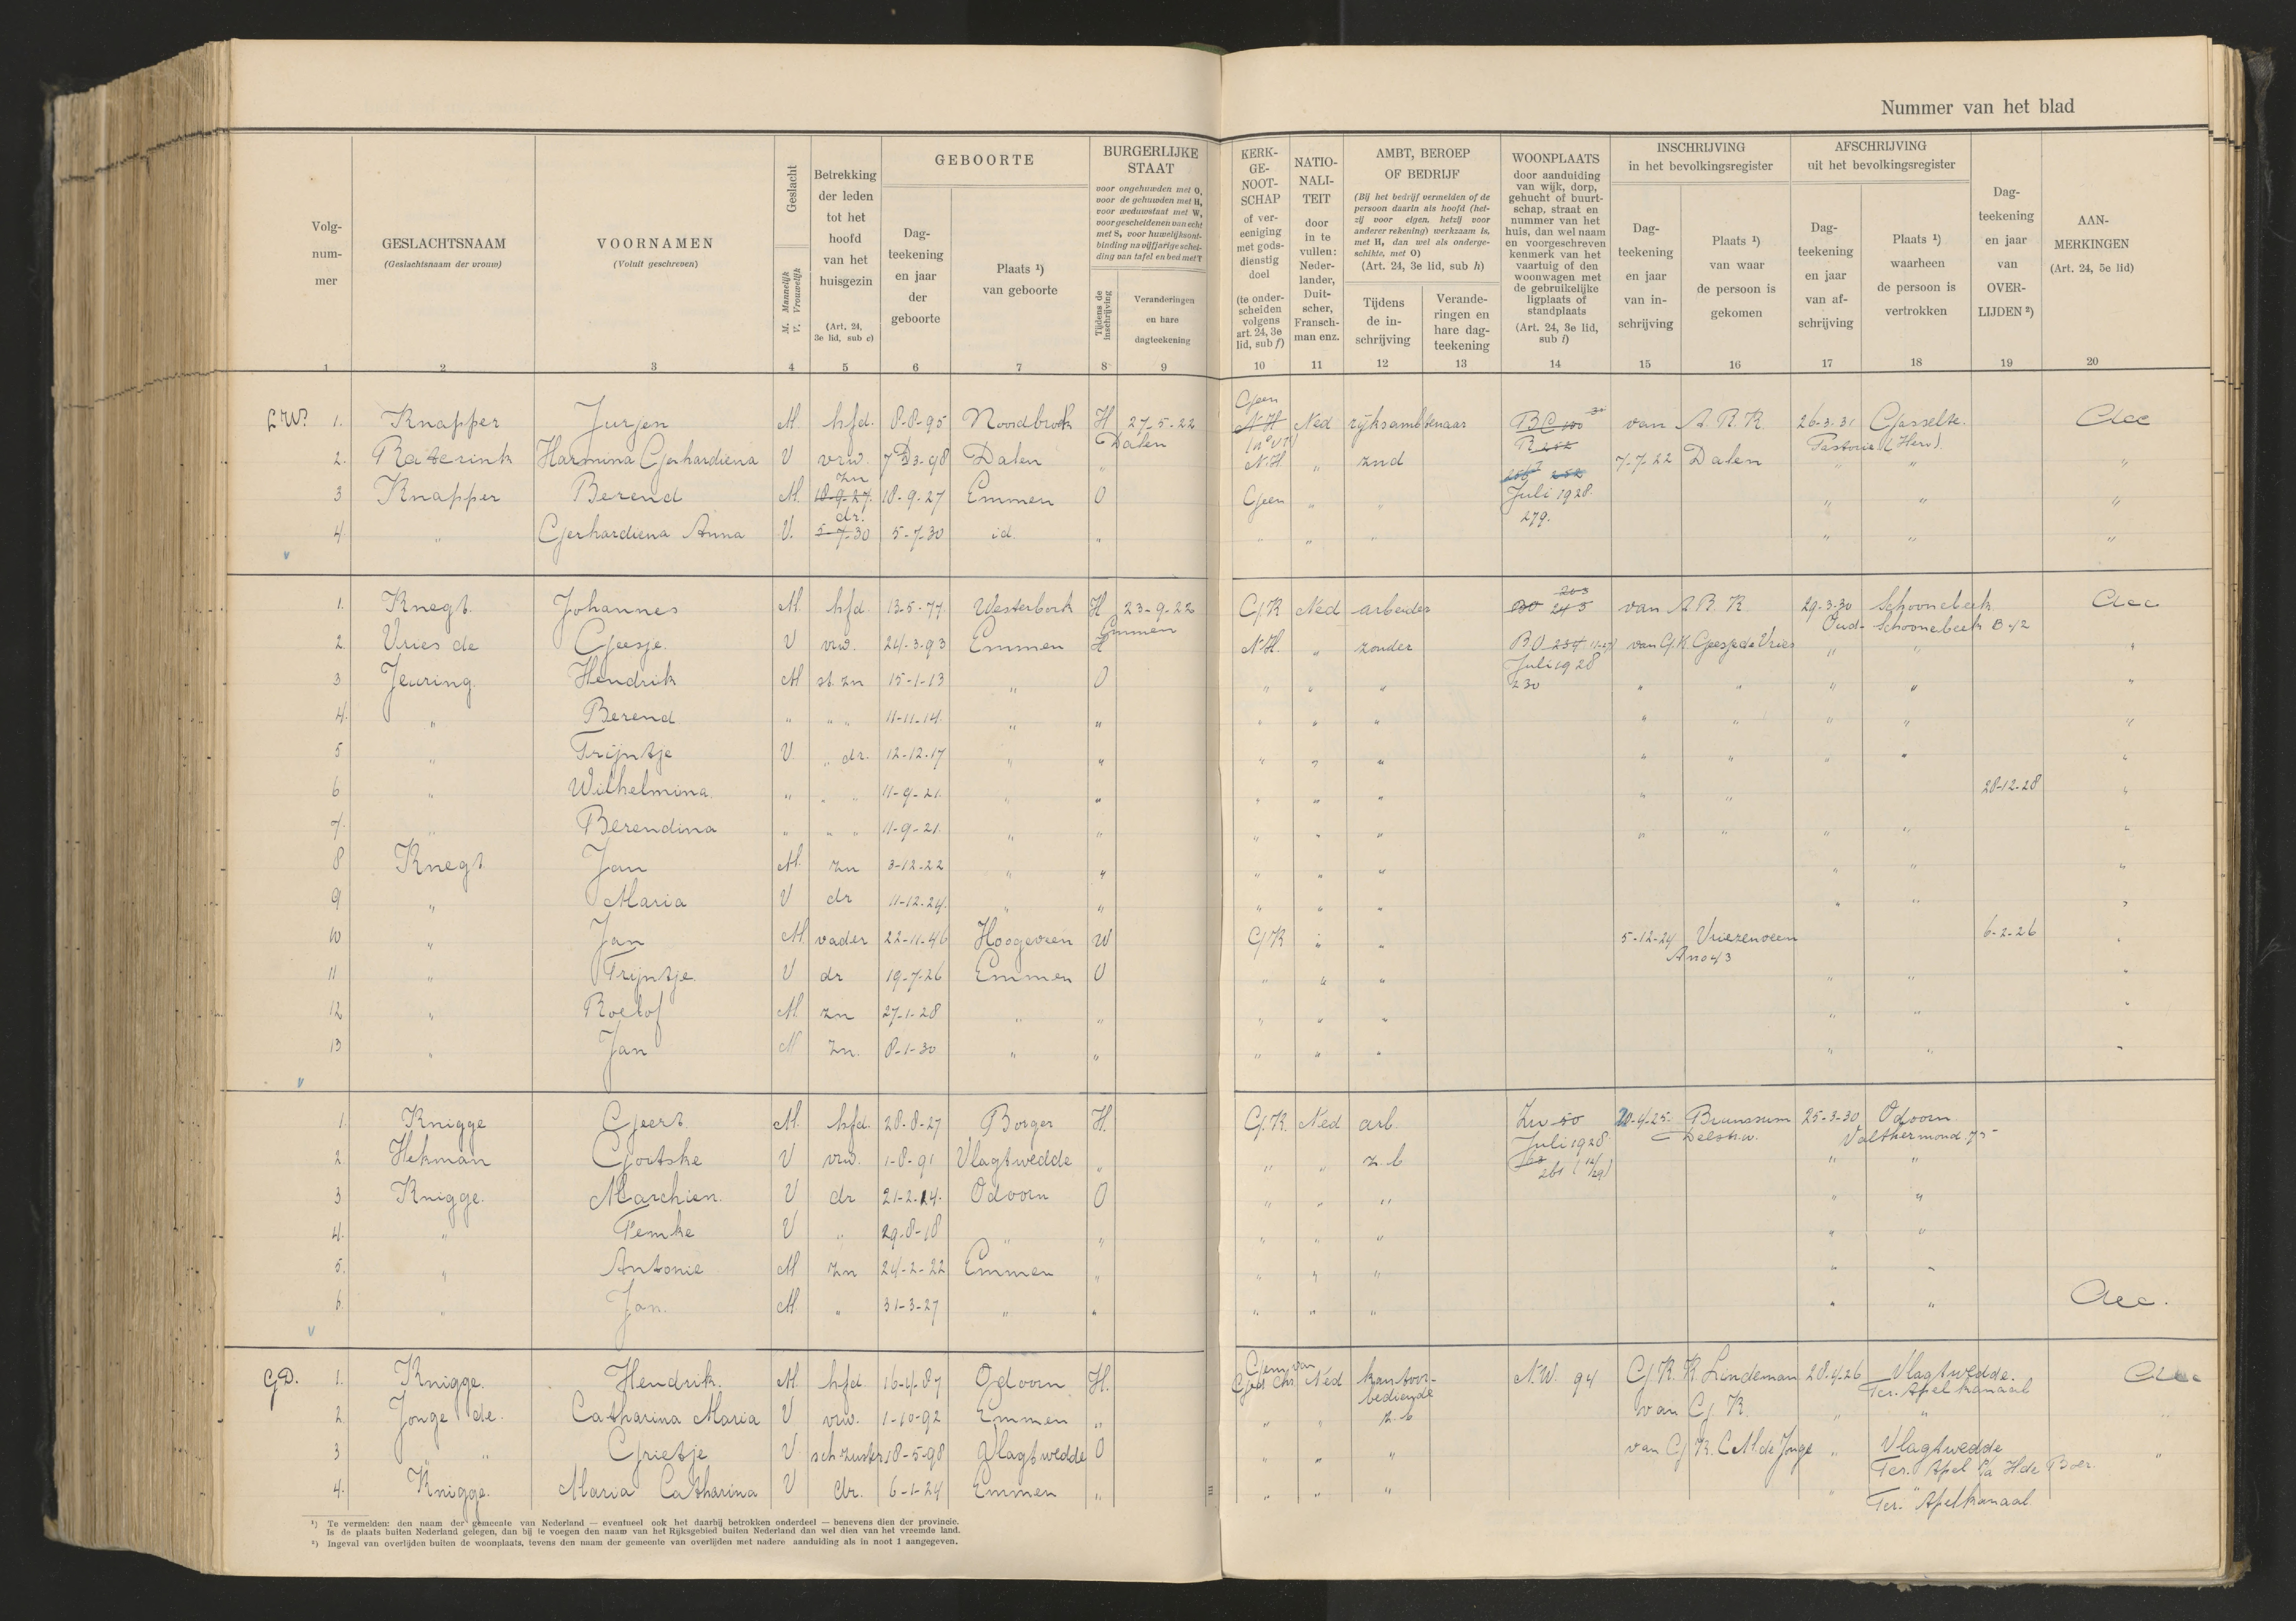 Nummer van het blad
Volg-
num-
mer
GESLACHTSNAAM
(Geslachtsnaam der vrouw)
VOORNAMEN
(Voluit geschreven)
Geslacht
M. Mannelijk
V. Vrouwelijk
Betrekking
der leden
tot het
hoofd
van het
huisgezin
(Art. 24,
3e lid, sub c)
GEBOORTE
Dag-
teekening
en jaar
der
geboorte
Plaats ¹)
van geboorte
BURGERLIJKE
STAAT
voor ongehuwden met O,
voor de gehuwden met H,
voor weduwstaat met W,
voor gescheidenen van echt
met S, voor huwelijksont-
binding na vijfjarige schei-
ding van tafel en bed met T
Tijdens de
inschrijving
Veranderingen
en hare
dagteekening
KERK-
GE-
NOOT-
SCHAP
of ver-
eeniging
met gods-
dienstig
doel
(te onder-
scheiden
volgens
art. 24, 3e
lid, sub f)
NATIO-
NALI-
TEIT
door
in te
vullen:
Neder-
lander,
Duit-
scher,
Fransch-
man enz.
AMBT, BEROEP
OF BEDRIJF
(Bij het bedrijf vermelden of de
persoon daarin als hoofd (het-
zij voor eigen, hetzij voor
anderer rekening) werkzaam is,
met H, dan wel als onderge-
schikte, met O)
(Art. 24, 3e lid, sub h)
Tijdens
de in-
schrijving
Verande-
ringen en
hare dag-
teekening
WOONPLAATS
door aanduiding
van wijk, dorp,
gehucht of buurt-
schap, straat en
nummer van het
huis, dan wel naam
en voorgeschreven
kenmerk van het
vaartuig of den
woonwagen met
de gebruikelijke
ligplaats of
standplaats
(Art. 24, 3e lid,
sub i)
INSCHRIJVING
in het bevolkingsregister
Dag-
teekening
en jaar
van in-
schrijving
Plaats ¹)
van waar
de persoon is
gekomen
AFSCHRIJVING
uit het bevolkingsregister
Dag-
teekening
en jaar
van af-
schrijving
Plaats ¹)
waarheen
de persoon is
vertrokken
Dag-
teekening
en jaar
van
OVER-
LIJDEN ²)
AAN-
MERKINGEN
(Art. 24, 5e lid)
1 2 3 4 5 6 7 8 9 10 11 12 13 14 15 16 17 18 19 20
1. Knapper Jurjen M. hfd. 8-8-95 Noordbroek H 27-5-22 Dalen Geen N.H. Ned rijksambtenaar van A.R.K. 26-3-31 Gasselte
2. Harmina Gerhardiena V vrw. Dalen " N.H. " znd 7-7-22 Dalen " "
3 Knapper Berend M. zn 18-9-27 18-9-27 Emmen O Geen " " Juli 1928 " " "
4 " Gerhardiena Anna V. dr. 5-7-30 5-7-30 id " " " " 279. " " "
1. Knegt Johannes M. hfd. 13-5-77 Westerbork H 23-9-22 Emmen G.K Ned arbeider 245 van A.B.K. 29-3-30 Schoonebeek
Oud-Schoonebeek B 42
2. Vries de Geesje V vrw. 24-3-93 Emmen H N.H. " zonder van G.K. Geesje de Vries " " "
3 Jeuring Hendrik M st. zn 15-1-13 " O " " " Juli 1928 230 " " " " "
4. " Berend " " " 11-11-14 " " " " " " " " " "
5 " Trijntje V " dr. 12-12-17 " " " " " " " " " "
6 " Wilhelmina " " " 11-9-21 " " " " " " " 28-12-28 "
7. " Berendina " " " 11-9-21 " " " " " " " " " "
8 Knegt Jan M. zn 3-12-22 " " " " " " " "
9 " Maria V dr 11-12-24 " " " " " " " "
10 " Jan M vader 22-11-46 Hoogeveen W G K " " 5-12-24 Vriezenveen 6-2-26 "
11 " Trijntje V dr 19-7-26 Emmen O " " " " " "
12 " Roelof M zn 27-1-28 " " " " " " " "
13 " Jan M zn. 8-1-30 " " " " " " " "
1. Knigge Geert M. hfd. Borger H. G.K. Ned arb. Zw 50 20-4-25 Brunssum 25-3-30 Odoorn
Valthermond 75
2 Hekman V vrw. 1-8-91 Vlagtwedde " " " z.b. Juli 1928 261 " "
3 Knigge. Marchien V dr 21-2-14 Odoorn O " " " " "
4. " Femke V " 29-8-18 " " " " " " "
5. " Antonie M zn 24-2-22 Emmen " " " " " "
6. " Jan. M " 31-3-27 " " " " " " "
G.D. 1. Knigge. Hendrik M. hfd 16-4-87 Odoorn H. Ned kantoor-
bediende N.W. 94 G.K. K Lindeman 28-4-26 Vlagtwedde.
Ter. Apel kanaal
2. Jonge de. Catharina Maria V vrw. 1-10-92 Emmen " " " z.b van G.K. " "
3 " " Grietje V sch. zuster 18-5-98 Vlagtwedde O " " " van G.K. C.M. de Jonge " Vlagtwedde
Ter. Apel p/a H de Boer
4. Knigge. Maria Catharina V dr. 6-1-24 Emmen " " " " "
Ter. Apelkanaal
¹) Te vermelden: den naam der gemeente van Nederland — eventueel ook het daarbij betrokken onderdeel — benevens dien der provincie.
Is de plaats buiten Nederland gelegen, dan bij te voegen den naam van het Rijksgebied buiten Nederland dan wel dien van het vreemde land.
²) Ingeval van overlijden buiten de woonplaats, tevens den naam der gemeente van overlijden met nadere aanduiding als in noot 1 aangegeven.